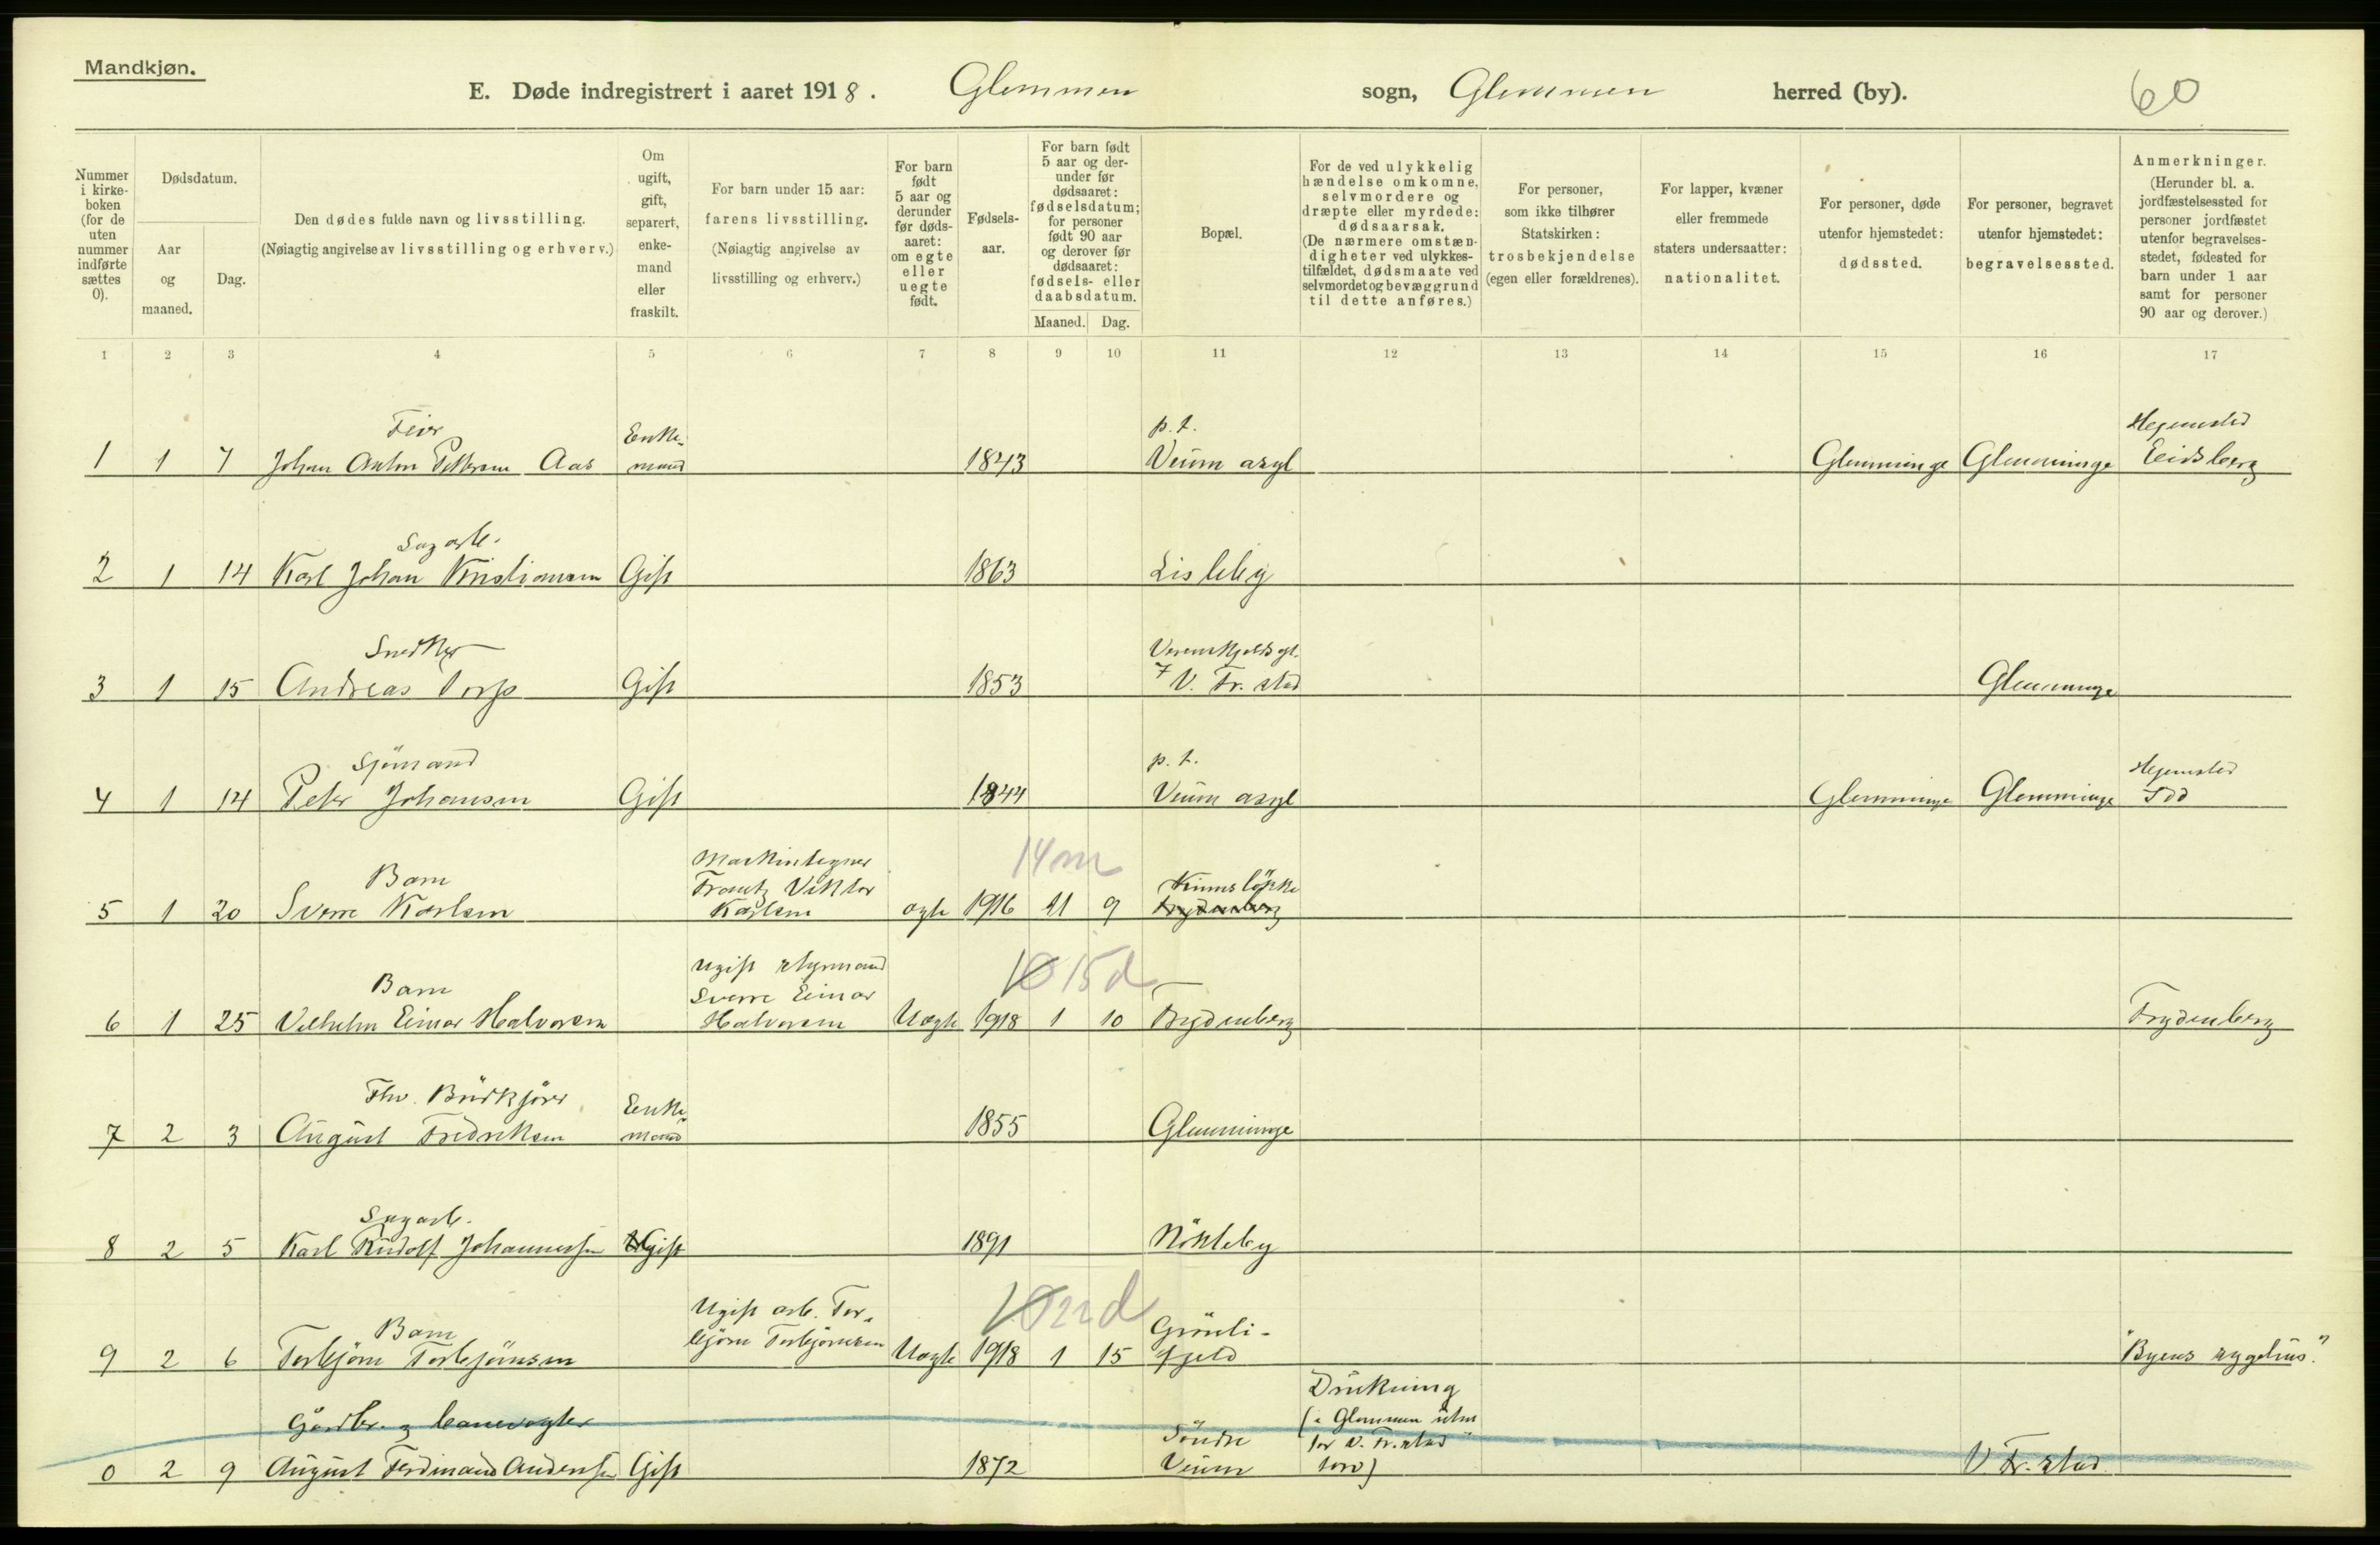 Mandkjøn.
E. Døde indregistrert i aaret 1918. Glemmen sogn, Glemmen herred (by). 60
Nummer i kirkeboken (for de uten nummer indførte sættes 0).
Dødsdatum.
Aar og maaned.
Dag.
Den dødes fulde navn og livsstilling.
(Nøiagtig angivelse av livsstilling og erhverv.)
Om ugift, gift, separert, enkemand eller fraskilt.
For barn under 15 aar: farens livsstilling. (Nøiagtig angivelse av livsstilling og erhverv.)
For barn født 5 aar og derunder før dødsaaret: om egte eller uegte født.
Fødselsaar.
For barn født 5 aar og derunder før dødsaaret: fødselsdatum; for personer født 90 aar og derover før dødsaaret: fødsels- eller daabsdatum.
Maaned. Dag.
Bopæl.
For de ved ulykkelig hændelse omkomne, selvmordere og dræpte eller myrdede: dødsaarsak. (De nærmere omstændigheter ved ulykkestilfældet, dødsmaate ved selvmordet og bevæggrund til dette anføres.)
For personer, som ikke tilhører Statskirken: trosbekjendelse (egen eller forældrenes).
For lapper, kvæner eller fremmede staters undersaatter: nationalitet.
For personer, døde utenfor hjemstedet: dødssted.
For personer, begravet utenfor hjemstedet: begravelsessted.
Anmerkninger. (Herunder bl. a. jordfæstelsessted for personer jordfæstet utenfor begravelsesstedet, fødested for barn under 1 aar samt for personer 90 aar og derover.)
1 2 3 4 5 6 7 8 9 10 11 12 13 14 15 16 17
Feier Enke- p. t. Hjemsted
1 1 7 Johan Anton Pettersen Aas mand 1843 Veum asyl Glemminge Glemminge Eidsberg
Sagarb.
2 1 14 Karl Johan Kristiansen Gift 1863 Lisleby
Snedker
3 1 15 Andreas Torp Gift 1853 7 V. Fr. stad Glemminge
Sjömand p. t. Hjemsted
4 1 14 Peter Johansen Gift 1844 Veum asyl Glemminge Glemminge Idd
Maskintegner 14 m
Barn Frantz Viktor
5 1 20 Sverre Karlsen Karlsen egte 1916 11 9 Frydenberg
Ugift styrmand 10 15 d
Barn Sverre Einar
6 1 25 Vilhelm Einar Halvorsen Halvorsen Uegte 1918 1 10 Frydenberg Frydenberg
Fhv. Enke-
7 2 3 August Fredriksen mand 1855 Glemminge
Sagarb.
8 2 5 Karl Rudolf Johannessen Gift 1891 Nökleby
Ugift arb. Tor- 10 22 d Grönli-
Barn björn Torbjörnsen
9 2 6 Torbjörn Torbjörnsen Uegte 1918 1 15 fjeld "Byens sygehus."
Drukning
Gårdbr. og banevogter (i Glommen uten
Söndre for V. Fr. stad
0 2 9 August Ferdinand Andersen Gift 1872 Veum V. Fr. stad